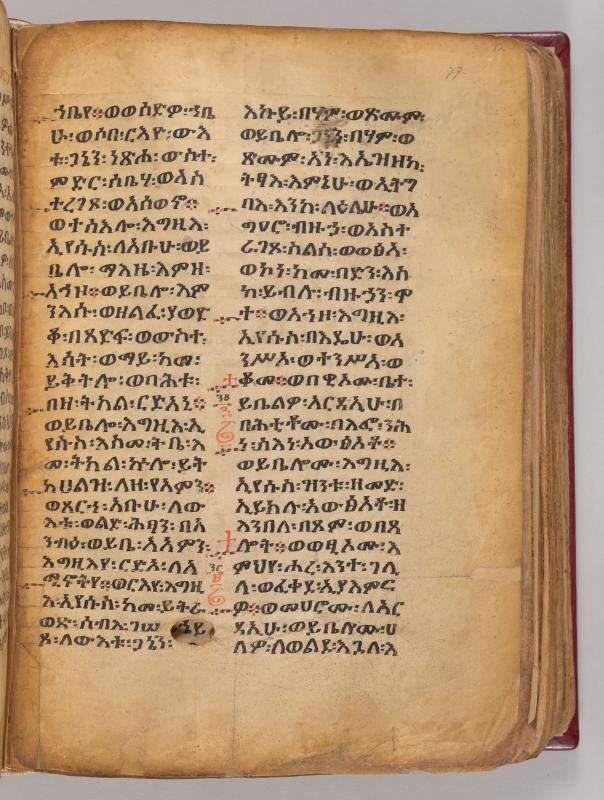 ኀቤየ፡ወወሰድዎ፡ኀቤ
ሁ፡ወሶበ፡ርእዮ፡ውእ
ቱ፡ጋኔን፡ነጽሖ፡ውስተ፡
ምድር፡ሰቤሃ፡ወአስ
ተረገጾ፡ወአሰወኖ፨
ወተስእሎ፡እግዚእ፡
ኢየሱስ፡ለአቡሁ፡ወይ
ቤሎ፡ማእዜ፡እምዘ፡
አኀዞ፨ወይቤሎ፡እም
ንእሱ፡ወዘልፈ፡ያወድ
ቆ፡በጸድፍ፡ወውስተ፡
እሳት፡ወማይ፡ከመ፡
ይቅትሎ፡ወባሕቱ፡
በዘ፡ትክል፡ርድአኒ፨
ወይቤሎ፡እግዚእ፡ኢ
የሱስ፡እስመ፡ትቤ፡እ
መ፡ትክል፡ኵሎ፡ይት
ከሀልዝ፡ለዘ፡የአምን፨
ወጸርኀ፡አቡሁ፡ለው
እቱ፡ወልድ፡ሕፃን፡በአ
ንብዕ፡ወይቤ፡አአምን፡
እግዚእየ፡ርድአ፡ለአ
ሚኖትየ፨ወርእየ፡እግዚ
እ፡ኢየሱስ፡ከመ፡ይትራ
ወጹ፡ሰብእ፡ገሠ
ጾ፡ለውእቱ፡ጋኔን፡
እኩይ፡በሃም፡ወጽሙም፡
ወይቤሎ፡ጋኔን፡በሃም፡ወ
ጽሙም፡አነ፡እኤዝዘከ፡
ትፃእ፡እምኔሁ፡ወኢትግ
ባእ፡እንከ፡ላዕሌሁ፨ወአ
ግዓሮ፡ብዙኀ፡ወአስተ
ራገጾ፡ስልሰ፡ወወፅአ፡
ወኮነ፡ከመ፡በድን፡እስ
ከ፡ይብሉ፡ብዙኃን፡ሞ
ተ፨ወአኀዘ፡እግዚእ፡
ኢየሱስ፡በእዴሁ፡ወአ
ንሥኦ፡ወተንሥአ፡ወ
ቆመ፨ወበዊኦሙ፡ቤተ፡
ይቤልዎ፡አርዳኢሁ፡በ
በሕቲቶሙ፡በእፎ፡ንሕ
ነ፡ስእነ፡አውፅኦቶ፨
ወይቤሎሙ፡እግዚእ፡
ኢየሱስ፡ዝንቱ፡ዘመድ፡
ኢይክሉ፡አውፅኦቶ፡ዘ
እንበለ፡በጾም፡ወበጸ
ሎት፨ወወፂኦሙ፡እ
ምህየ፡ሐረ፡እንተ፡ገሊ
ላ፡ወፈቀደ፡ኢያእምር
ዎ፨ወመሀሮሙ፡ለአር
ዳኢሁ፡ወይቤሎሙ፡ሀ
ለዎ፡ለወልደ፡እጓለ፡እ